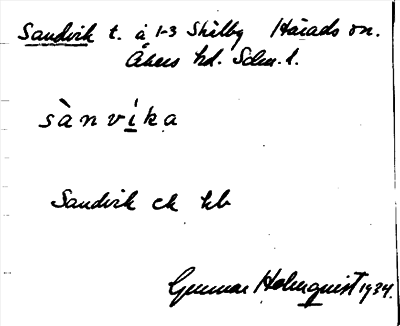 Sandvik t. å 1-3 Skälby Härads sn.
Åkers hd. Södm. l.
sànvi̱ka
Sandvik ek kb
Gunnar Holmquist 1934.